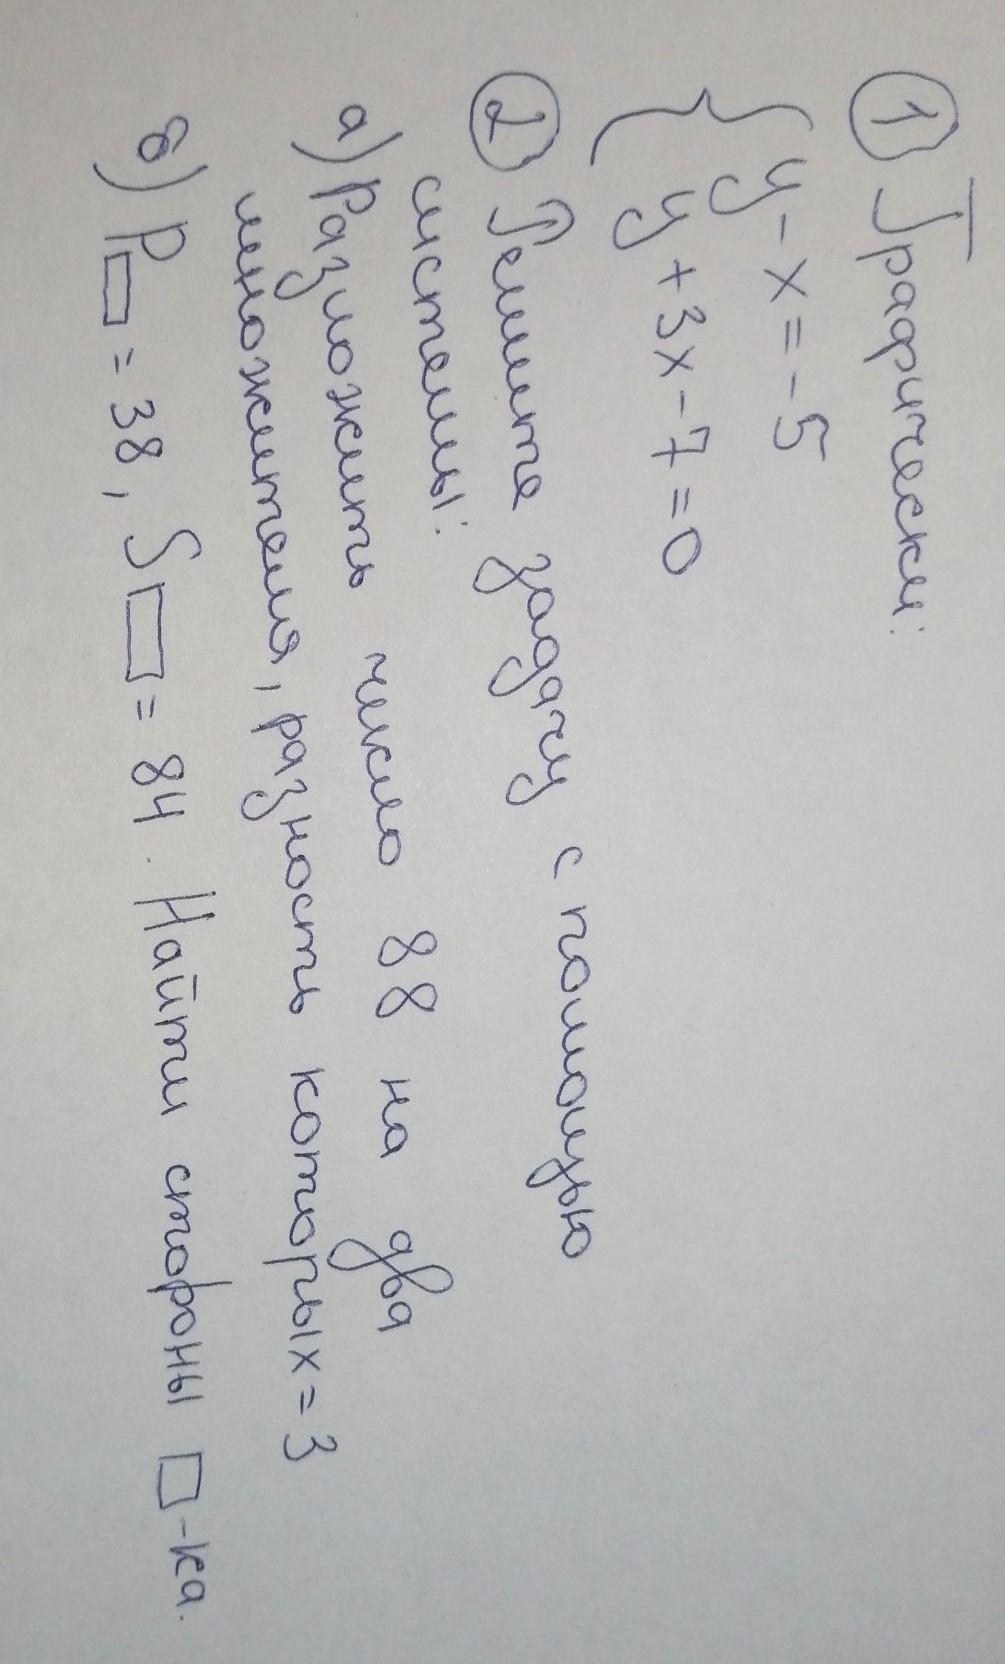 1 Графически:
{ y - x = -5
y + 3x - 7 = 0
2 Решите задачу с помощью
системы:
а) Разложить число 88 на два
множителя, разность которых = 3
б) P▭ = 38, S▭ = 84. Найти стороны □-ка.